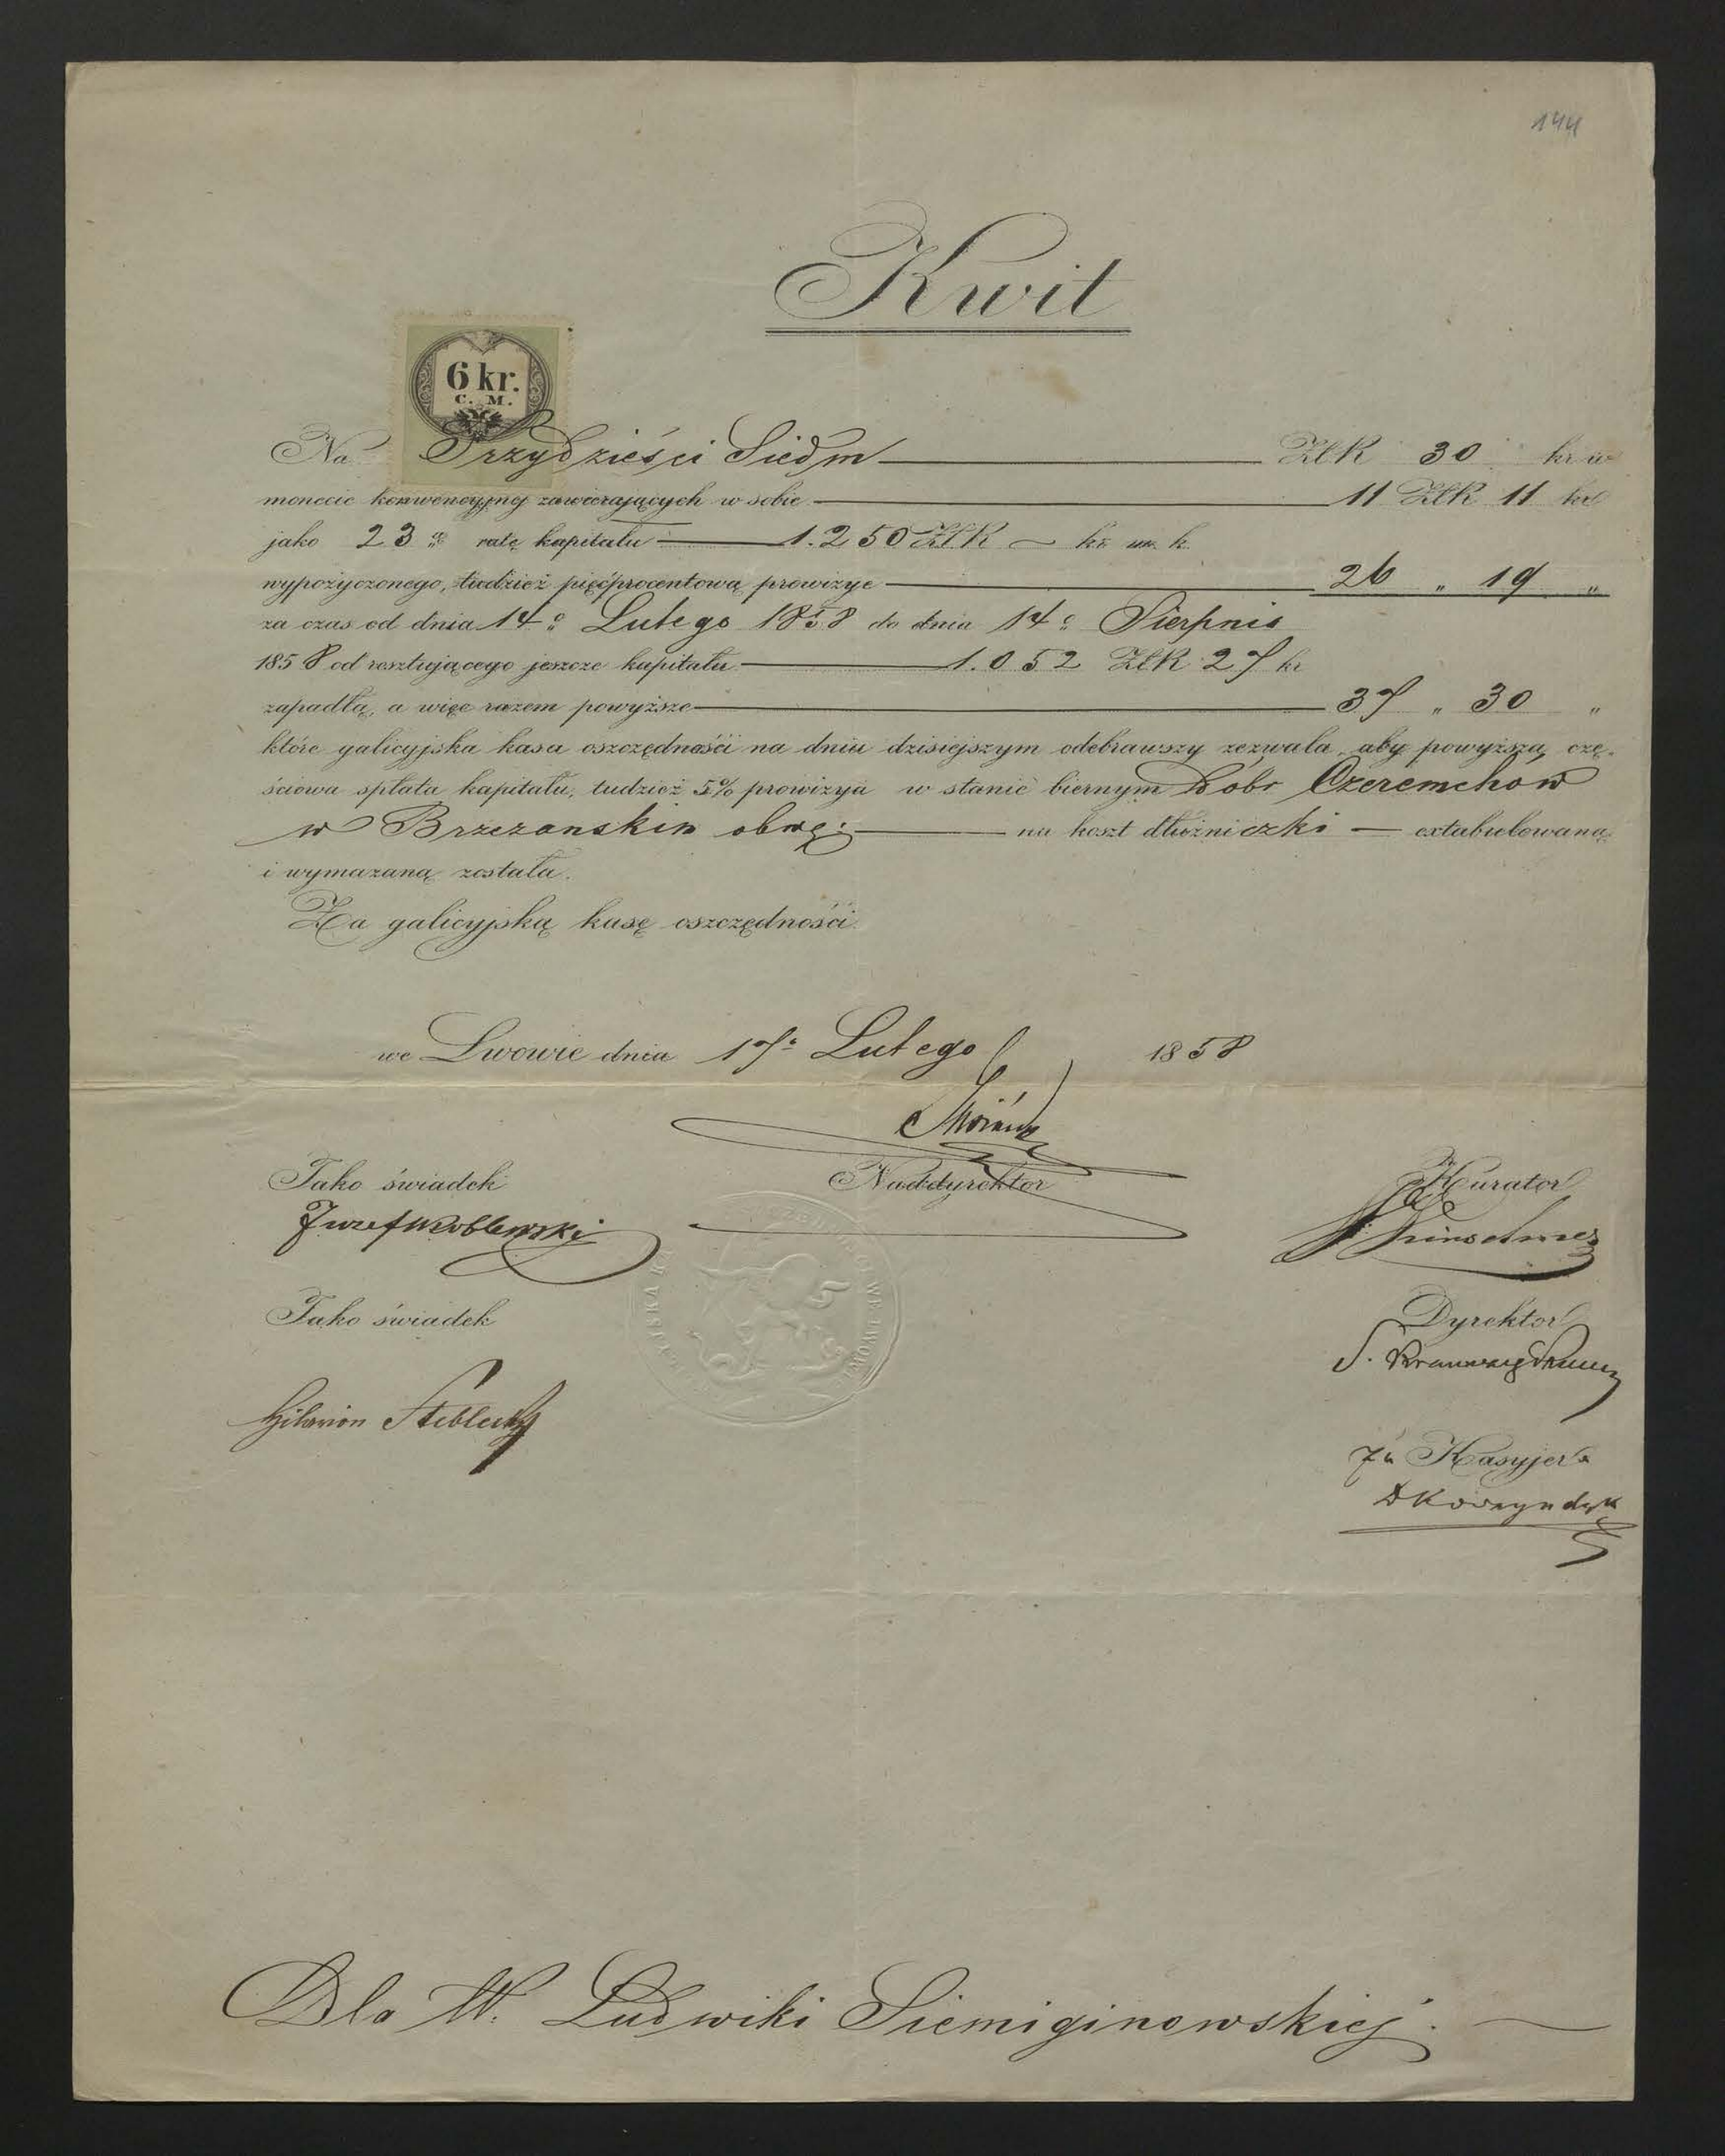 144
Kwit
6 kr.
C. M.
Na Trzydzieści Siedm ZłR 30 kr w
monecie konwencyjnej zawierających w sobie 11 ZłR 11 kr
jako 23 ratę kapitału 1.250 ZłR kr. m. k.
wypożyczonego, tudzież pięćprocentową prowizye 26 " 19 "
za czas od dnia 14º Lutego 1858 do dnia 14º Sierpnia
1858 od resztującego jeszcze kapitału 1.052 ZłR 27 kr
zapadłą, a więc razem powyższe 37 " 30 "
które galicyjska kasa oszczędności na dniu dzisiejszym odebrawszy zezwala, aby powyższa czę-
ściowa spłata kapitału, tudzież 5% prowizya w stanie biernym Dóbr Czeremchów
w Brzezanskim obwę: na koszt dłużniczki extabulowaną
i wymazaną została.
Za galicyjską kasę oszczędności.
we Lwowie dnia 17º Lutego 1858
Jako świadek Naddyrektor Kurator
Juzef Wroblewski
Jako świadek Dyrektor
Hilarion
za Kasyjera
Dla W. Ludwiki Siemiginowskiej.